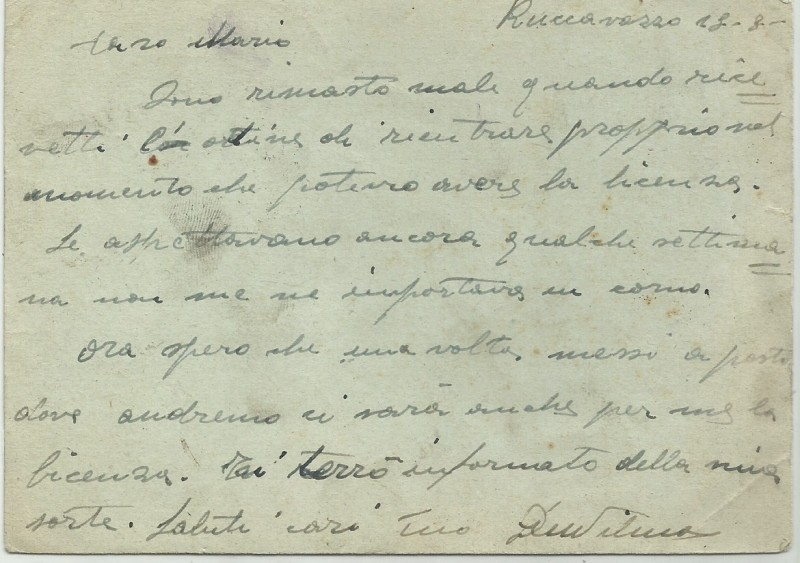 Roccavazzo 18-8-
Caro Mario
Sono rimasto male quando rice
vetti l'ordine di rientrare proppio nel
momento che potevo avere la licenza.
Se aspettavano ancora qualche settima
na non me ne importava un corno.
Ora spero che una volta messi a posto
dove andremo ci sarà anche per me la
licenza. Ti terrò informato della mia
sorte. Saluti cari tuo